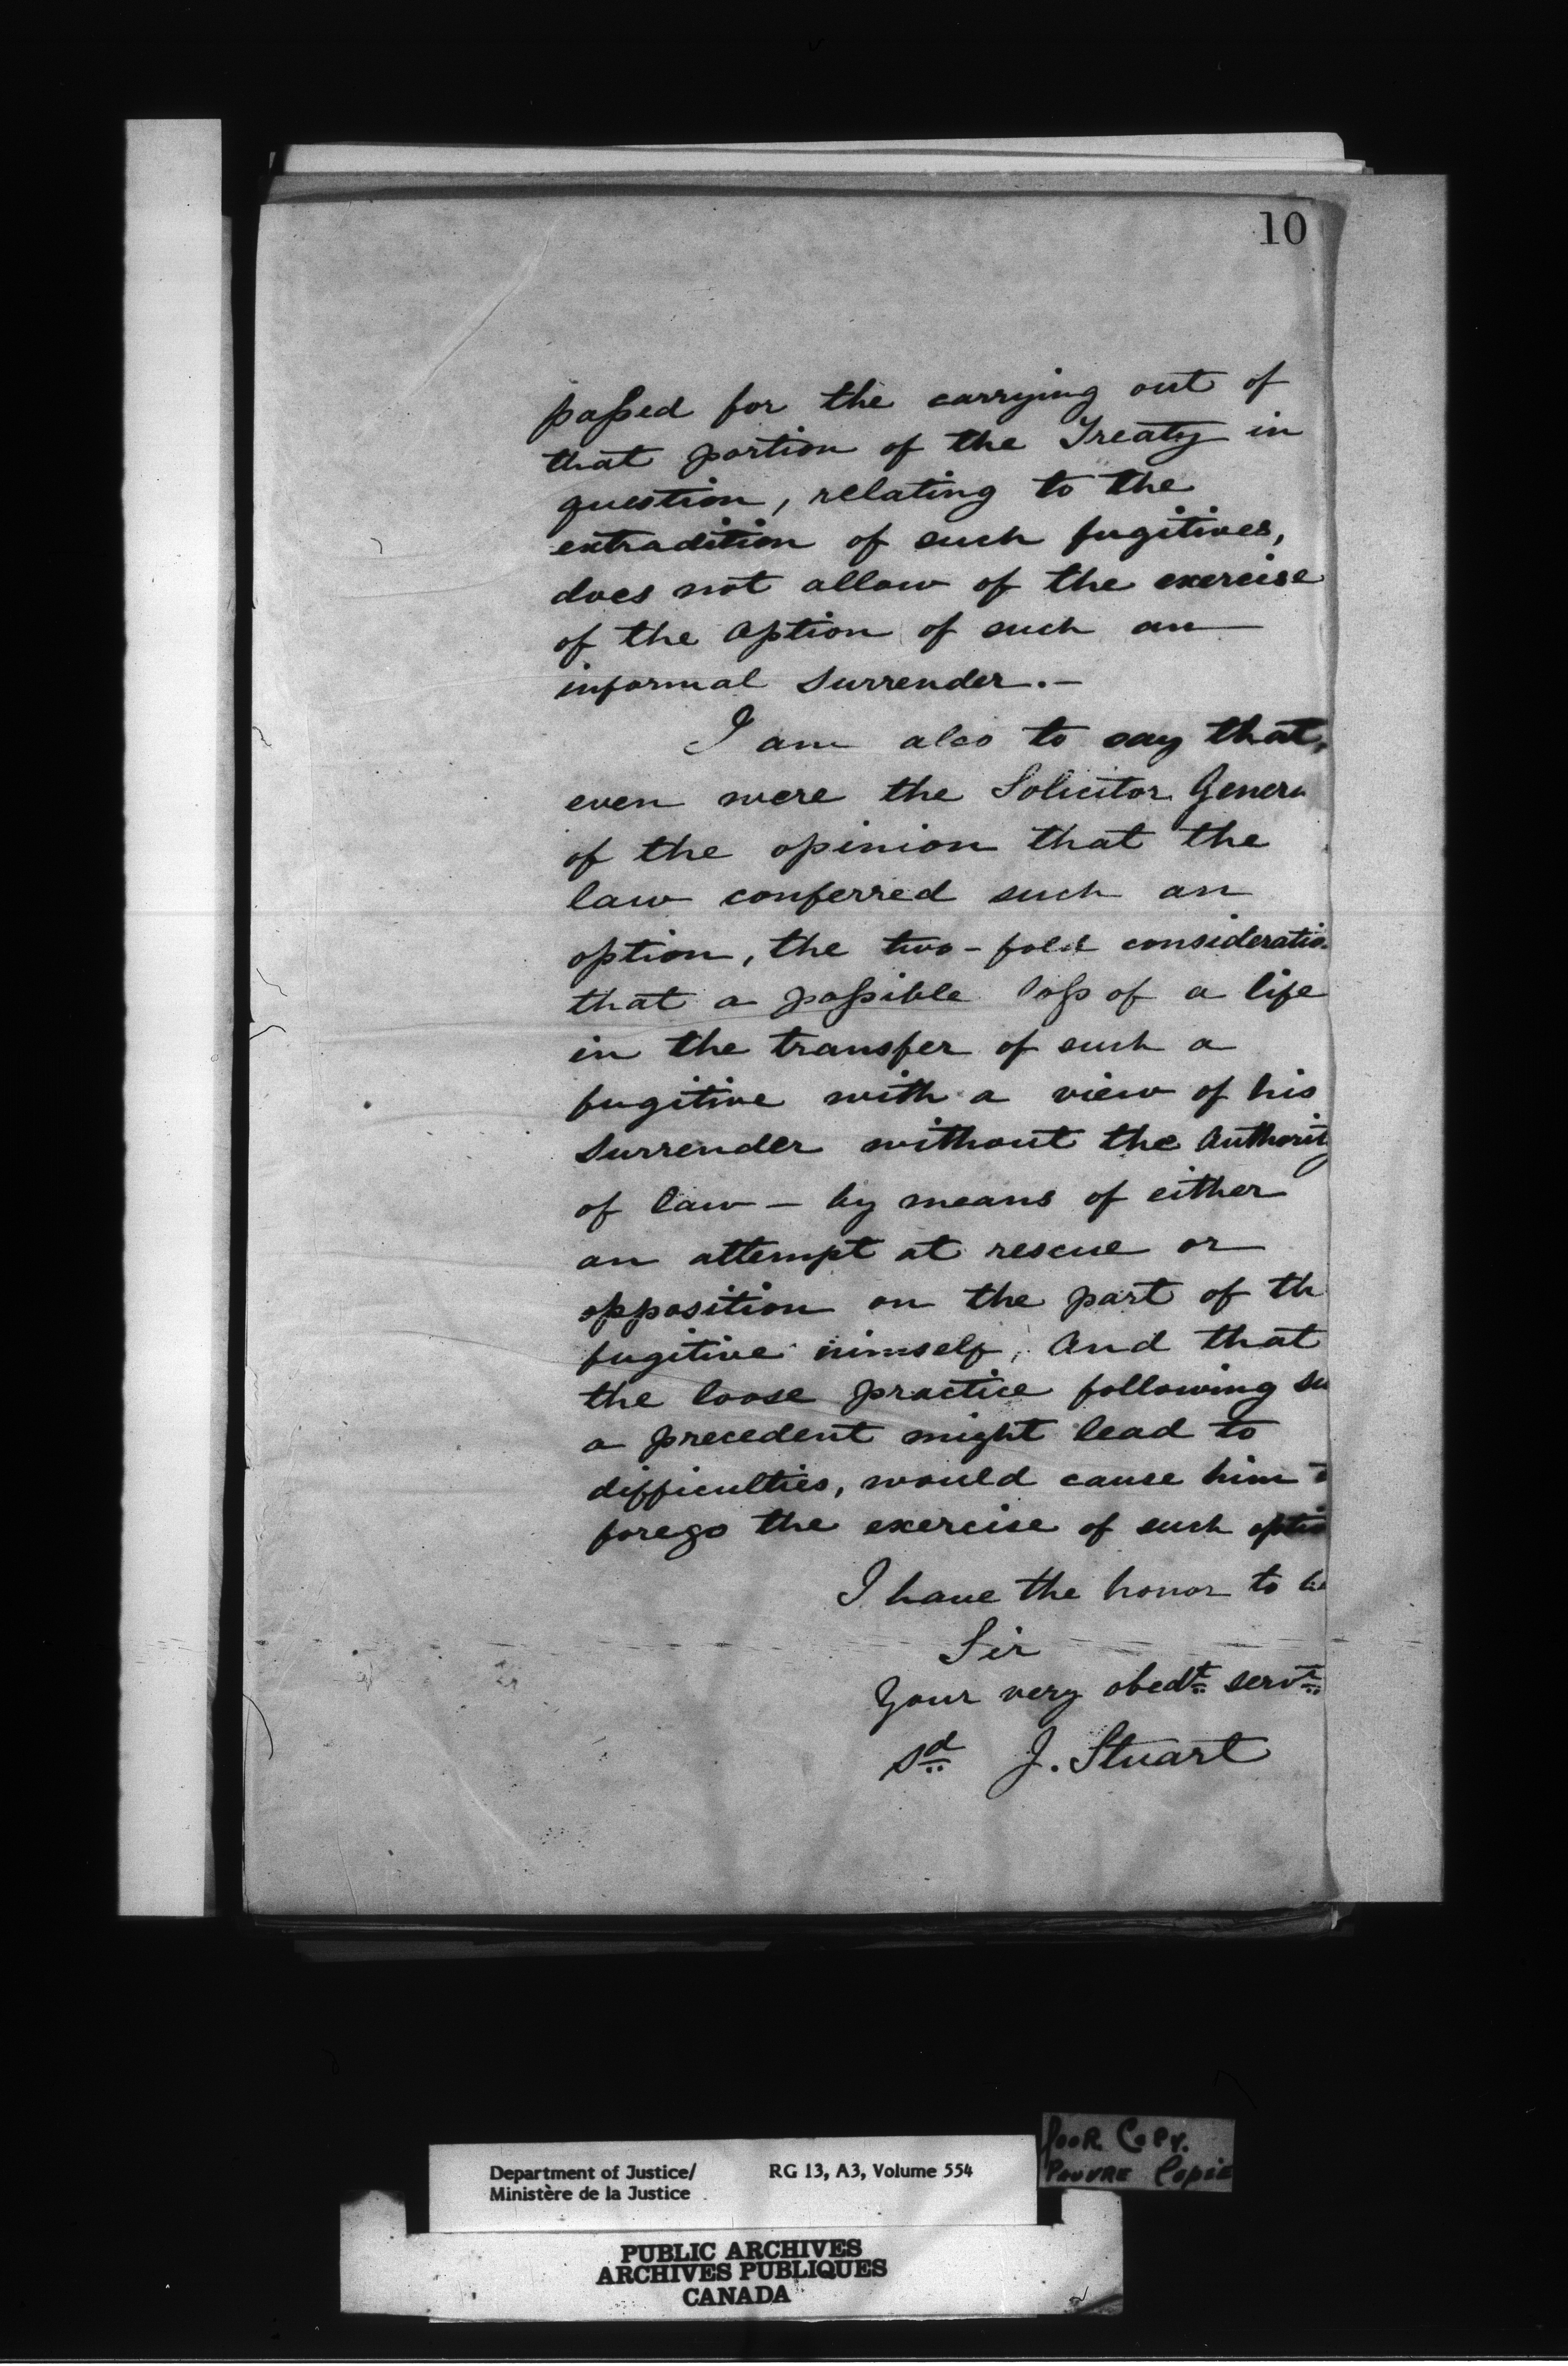 10
passed for the carrying out of
that portion of the Treaty in
question, relating to the
extradition of such fugitives,
does not allow of the exercise
of the option of such an
informal surrender.—
I am also to say that,
even were the Solicitor Genera
of the opinion that the
law conferred such an
option, the two-fold consideratio
that a possible loss of a life
in the transfer of such a
fugitive with a view of his
surrender without the Authority
of law — by means of either
an attempt at rescue or
opposition on the part of th
fugitive himself, And that
the loose practice following su
a precedent might lead to
difficulties, would cause him t
forego the exercise of such optio
I have the honor to be
Sir
Your very obedt servt
Sd J. Stuart
Poor Copy.
Pauvre Copie
Department of Justice/ RG 13, A3, Volume 554
Ministère de la Justice
PUBLIC ARCHIVES
ARCHIVES PUBLIQUES
CANADA